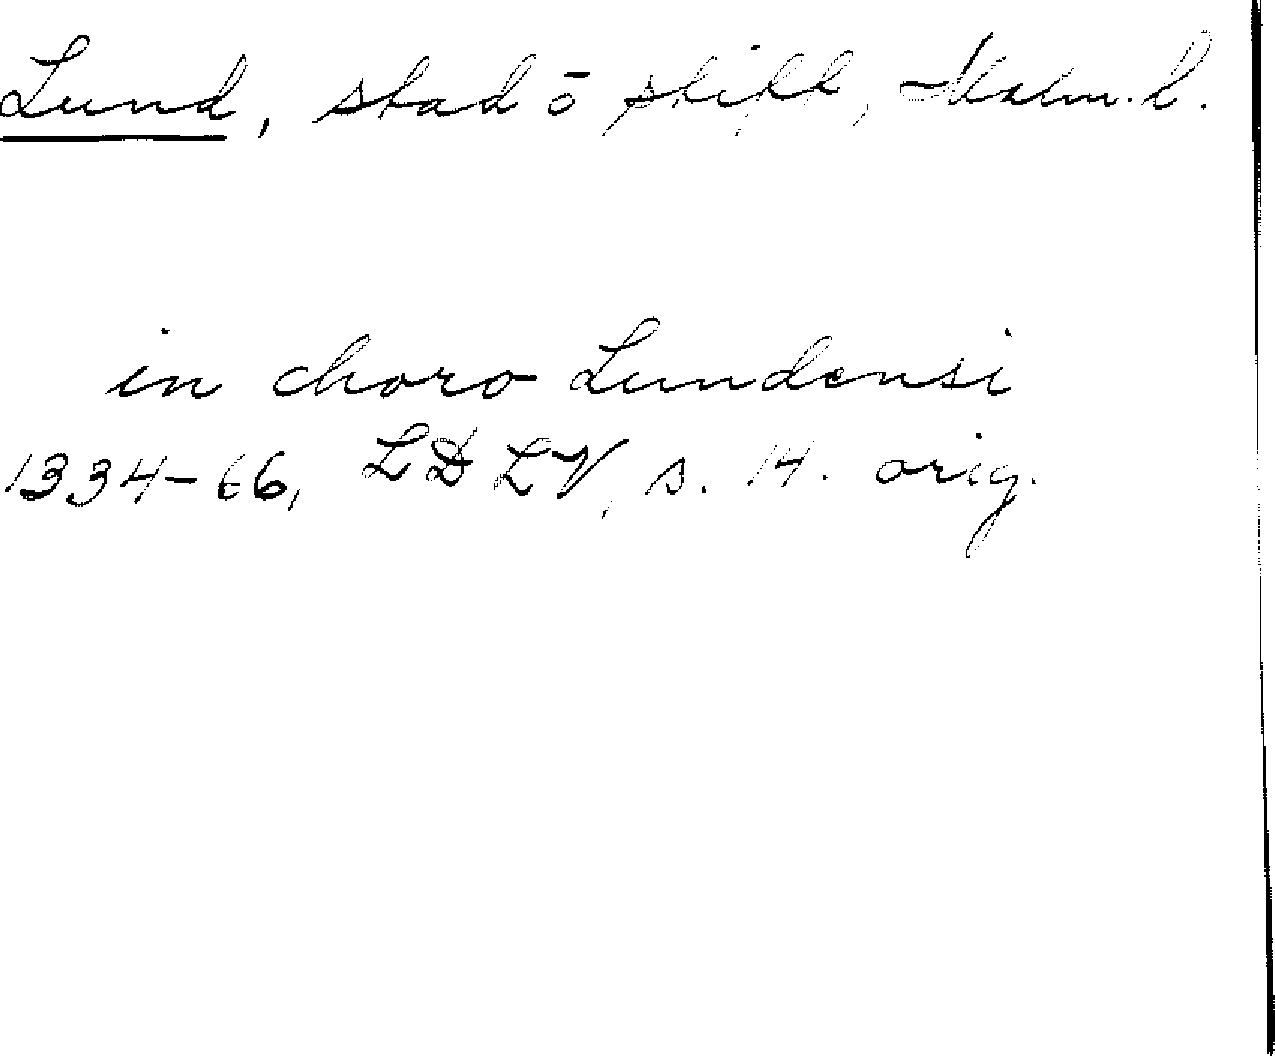 Lund, stad ō stift, Malm. l.
in choro Lundensi
1334-66, LD LV, s. 14. orig.